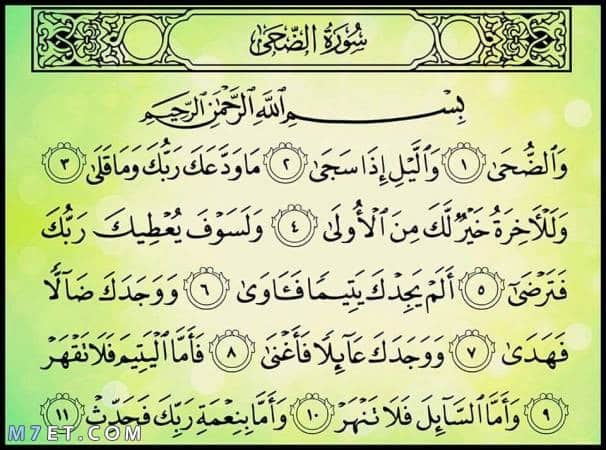 سُورَةُ الضُّحَىٰ
بِسْمِ اللَّهِ الرَّحْمَٰنِ الرَّحِيمِ
وَٱلضُّحَىٰ ١ وَٱلَّيۡلِ إِذَا سَجَىٰ ٢ مَا وَدَّعَكَ رَبُّكَ وَمَا قَلَىٰ ٣
وَلَلۡأٓخِرَةُ خَيۡرٞ لَّكَ مِنَ ٱلۡأُولَىٰ ٤ وَلَسَوۡفَ يُعۡطِيكَ رَبُّكَ
فَتَرۡضَىٰٓ ٥ أَلَمۡ يَجِدۡكَ يَتِيمٗا فَـَٔاوَىٰ ٦ وَوَجَدَكَ ضَآلّٗا
فَهَدَىٰ ٧ وَوَجَدَكَ عَآئِلٗا فَأَغۡنَىٰ ٨ فَأَمَّا ٱلۡيَتِيمَ فَلَا تَقۡهَرۡ
٩ وَأَمَّا ٱلسَّآئِلَ فَلَا تَنۡهَرۡ ١٠ وَأَمَّا بِنِعۡمَةِ رَبِّكَ فَحَدِّثۡ ١١
M7ET.COM